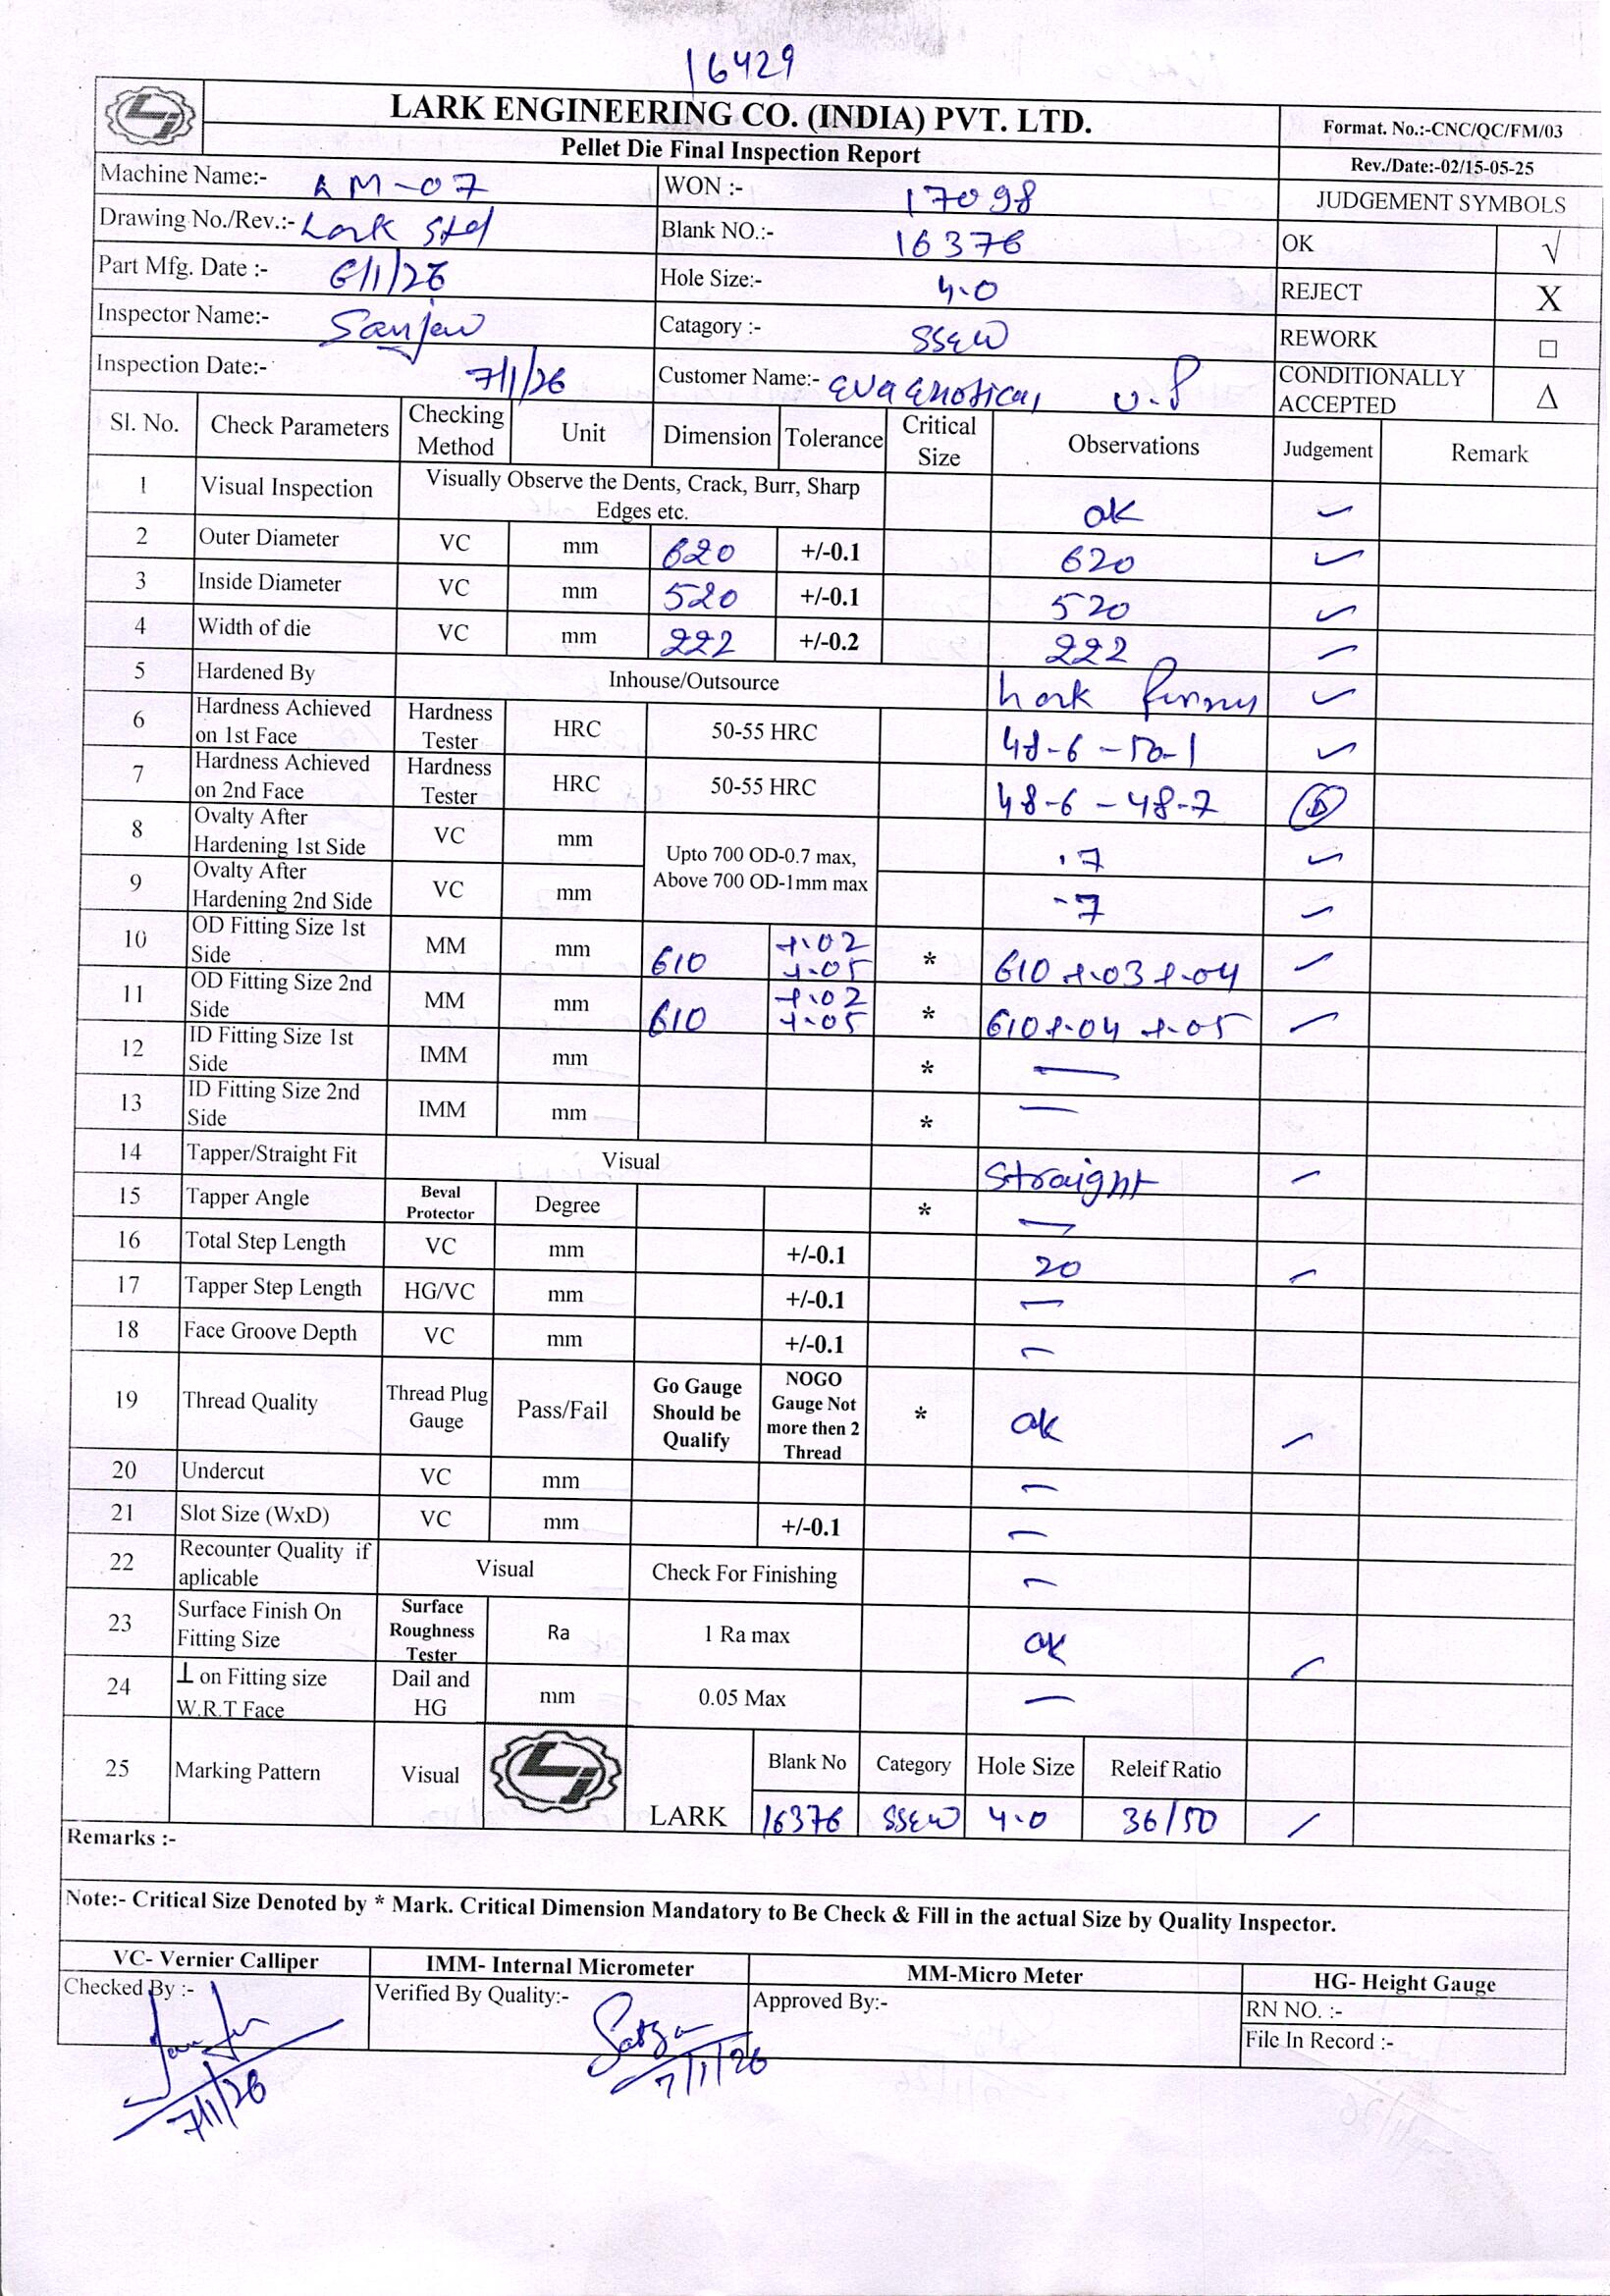 16429
LARK ENGINEERING CO. (INDIA) PVT. LTD.
Pellet Die Final Inspection Report
Format. No.:-CNC/QC/FM/03
Rev./Date:-02/15-05-25
Machine Name:- LM-07 WON :- 17098 JUDGEMENT SYMBOLS
Drawing No./Rev.:- Lark Std Blank NO.:- 16376 OK √
Part Mfg. Date :- 6/1/26 Hole Size:- 4.0 REJECT X
Inspector Name:- Sanjeev Catagory :- SSEW REWORK □
Inspection Date:- 7/1/26 Customer Name:- U.P CONDITIONALLY ACCEPTED Δ
Sl. No. Check Parameters Checking Method Unit Dimension Tolerance Critical Size Observations Judgement Remark
1 Visual Inspection Visually Observe the Dents, Crack, Burr, Sharp Edges etc. ok ✓
2 Outer Diameter VC mm 620 +/-0.1 620 ✓
3 Inside Diameter VC mm 520 +/-0.1 520 ✓
4 Width of die VC mm 222 +/-0.2 222 ✓
5 Hardened By Inhouse/Outsource Lark ✓
6 Hardness Achieved on 1st Face Hardness Tester HRC 50-55 HRC 48-6 - 50-1 ✓
7 Hardness Achieved on 2nd Face Hardness Tester HRC 50-55 HRC 48-6 - 48-7
8 Ovalty After Hardening 1st Side VC mm Upto 700 OD-0.7 max, Above 700 OD-1mm max .7 ✓
9 Ovalty After Hardening 2nd Side VC mm .7 ✓
10 OD Fitting Size 1st Side MM mm 610 +.02 +.05 * 610 +.03 +.04 ✓
11 OD Fitting Size 2nd Side MM mm 610 +.02 +.05 * 610 +.04 +.05 ✓
12 ID Fitting Size 1st Side IMM mm * —
13 ID Fitting Size 2nd Side IMM mm * —
14 Tapper/Straight Fit Visual Straight ✓
15 Tapper Angle Beval Protector Degree * —
16 Total Step Length VC mm +/-0.1 20 ✓
17 Tapper Step Length HG/VC mm +/-0.1 —
18 Face Groove Depth VC mm +/-0.1 —
19 Thread Quality Thread Plug Gauge Pass/Fail Go Gauge Should be Qualify NOGO Gauge Not more then 2 Thread * ok ✓
20 Undercut VC mm —
21 Slot Size (WxD) VC mm +/-0.1 —
22 Recounter Quality if aplicable Visual Check For Finishing —
23 Surface Finish On Fitting Size Surface Roughness Tester Ra 1 Ra max ok ✓
24 ⊥ on Fitting size W.R.T Face Dail and HG mm 0.05 Max —
25 Marking Pattern Visual LARK Blank No Category Hole Size Releif Ratio
16376 SSEW 4.0 36/50 ✓
Remarks :-
Note:- Critical Size Denoted by * Mark. Critical Dimension Mandatory to Be Check & Fill in the actual Size by Quality Inspector.
VC- Vernier Calliper IMM- Internal Micrometer MM-Micro Meter HG- Height Gauge
Checked By :- Verified By Quality:- Approved By:- RN NO. :-
File In Record :-
7/1/26 7/1/26